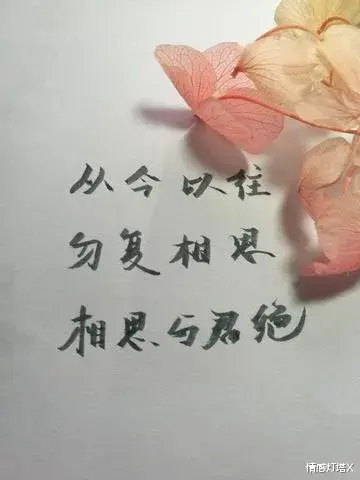 从今以往
勿复相思
相思与君绝
情感灯塔X